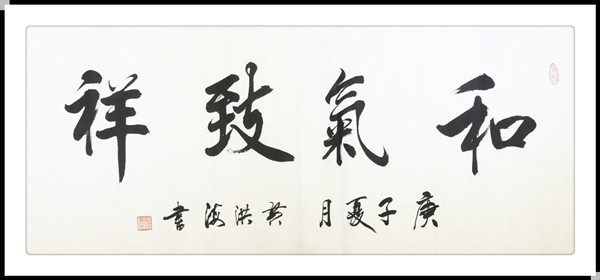 和氣致祥
庚子夏月黄洪海書